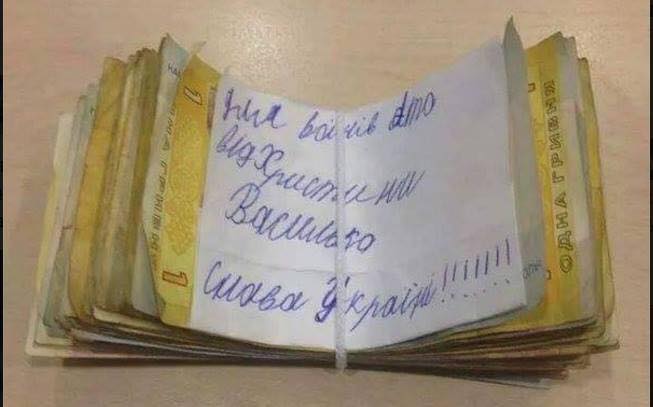 Для воїнів Ато
від Христини
Василько
Слава Україні!!!!!!!
1
1
ОДНА ГРИВНЯ